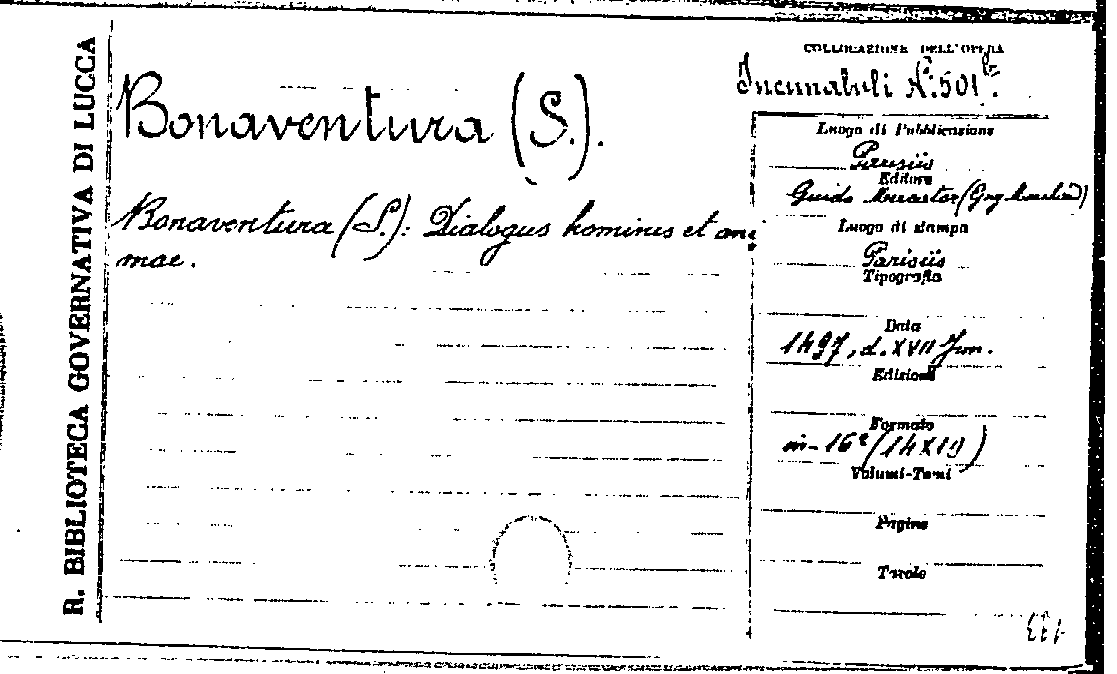 R. BIBLIOTECA GOVERNATIVA DI LUCCA
Bonaventura (S.).
Bonaventura (S.): Dialogus hominis et ani
mae.
COLLOCAZIONE DELL'OPERA
Incunabuli N.º 501
Luogo di Pubblicazione
Parisiis
Editore
Guido Mercator
Luogo di stampa
Parisiis
Tipografia
Data
1497, d. XVII Jun.
Edizione
Formato
in-16º (14X10)
Volumi-Tomi
Pagine
Tavole